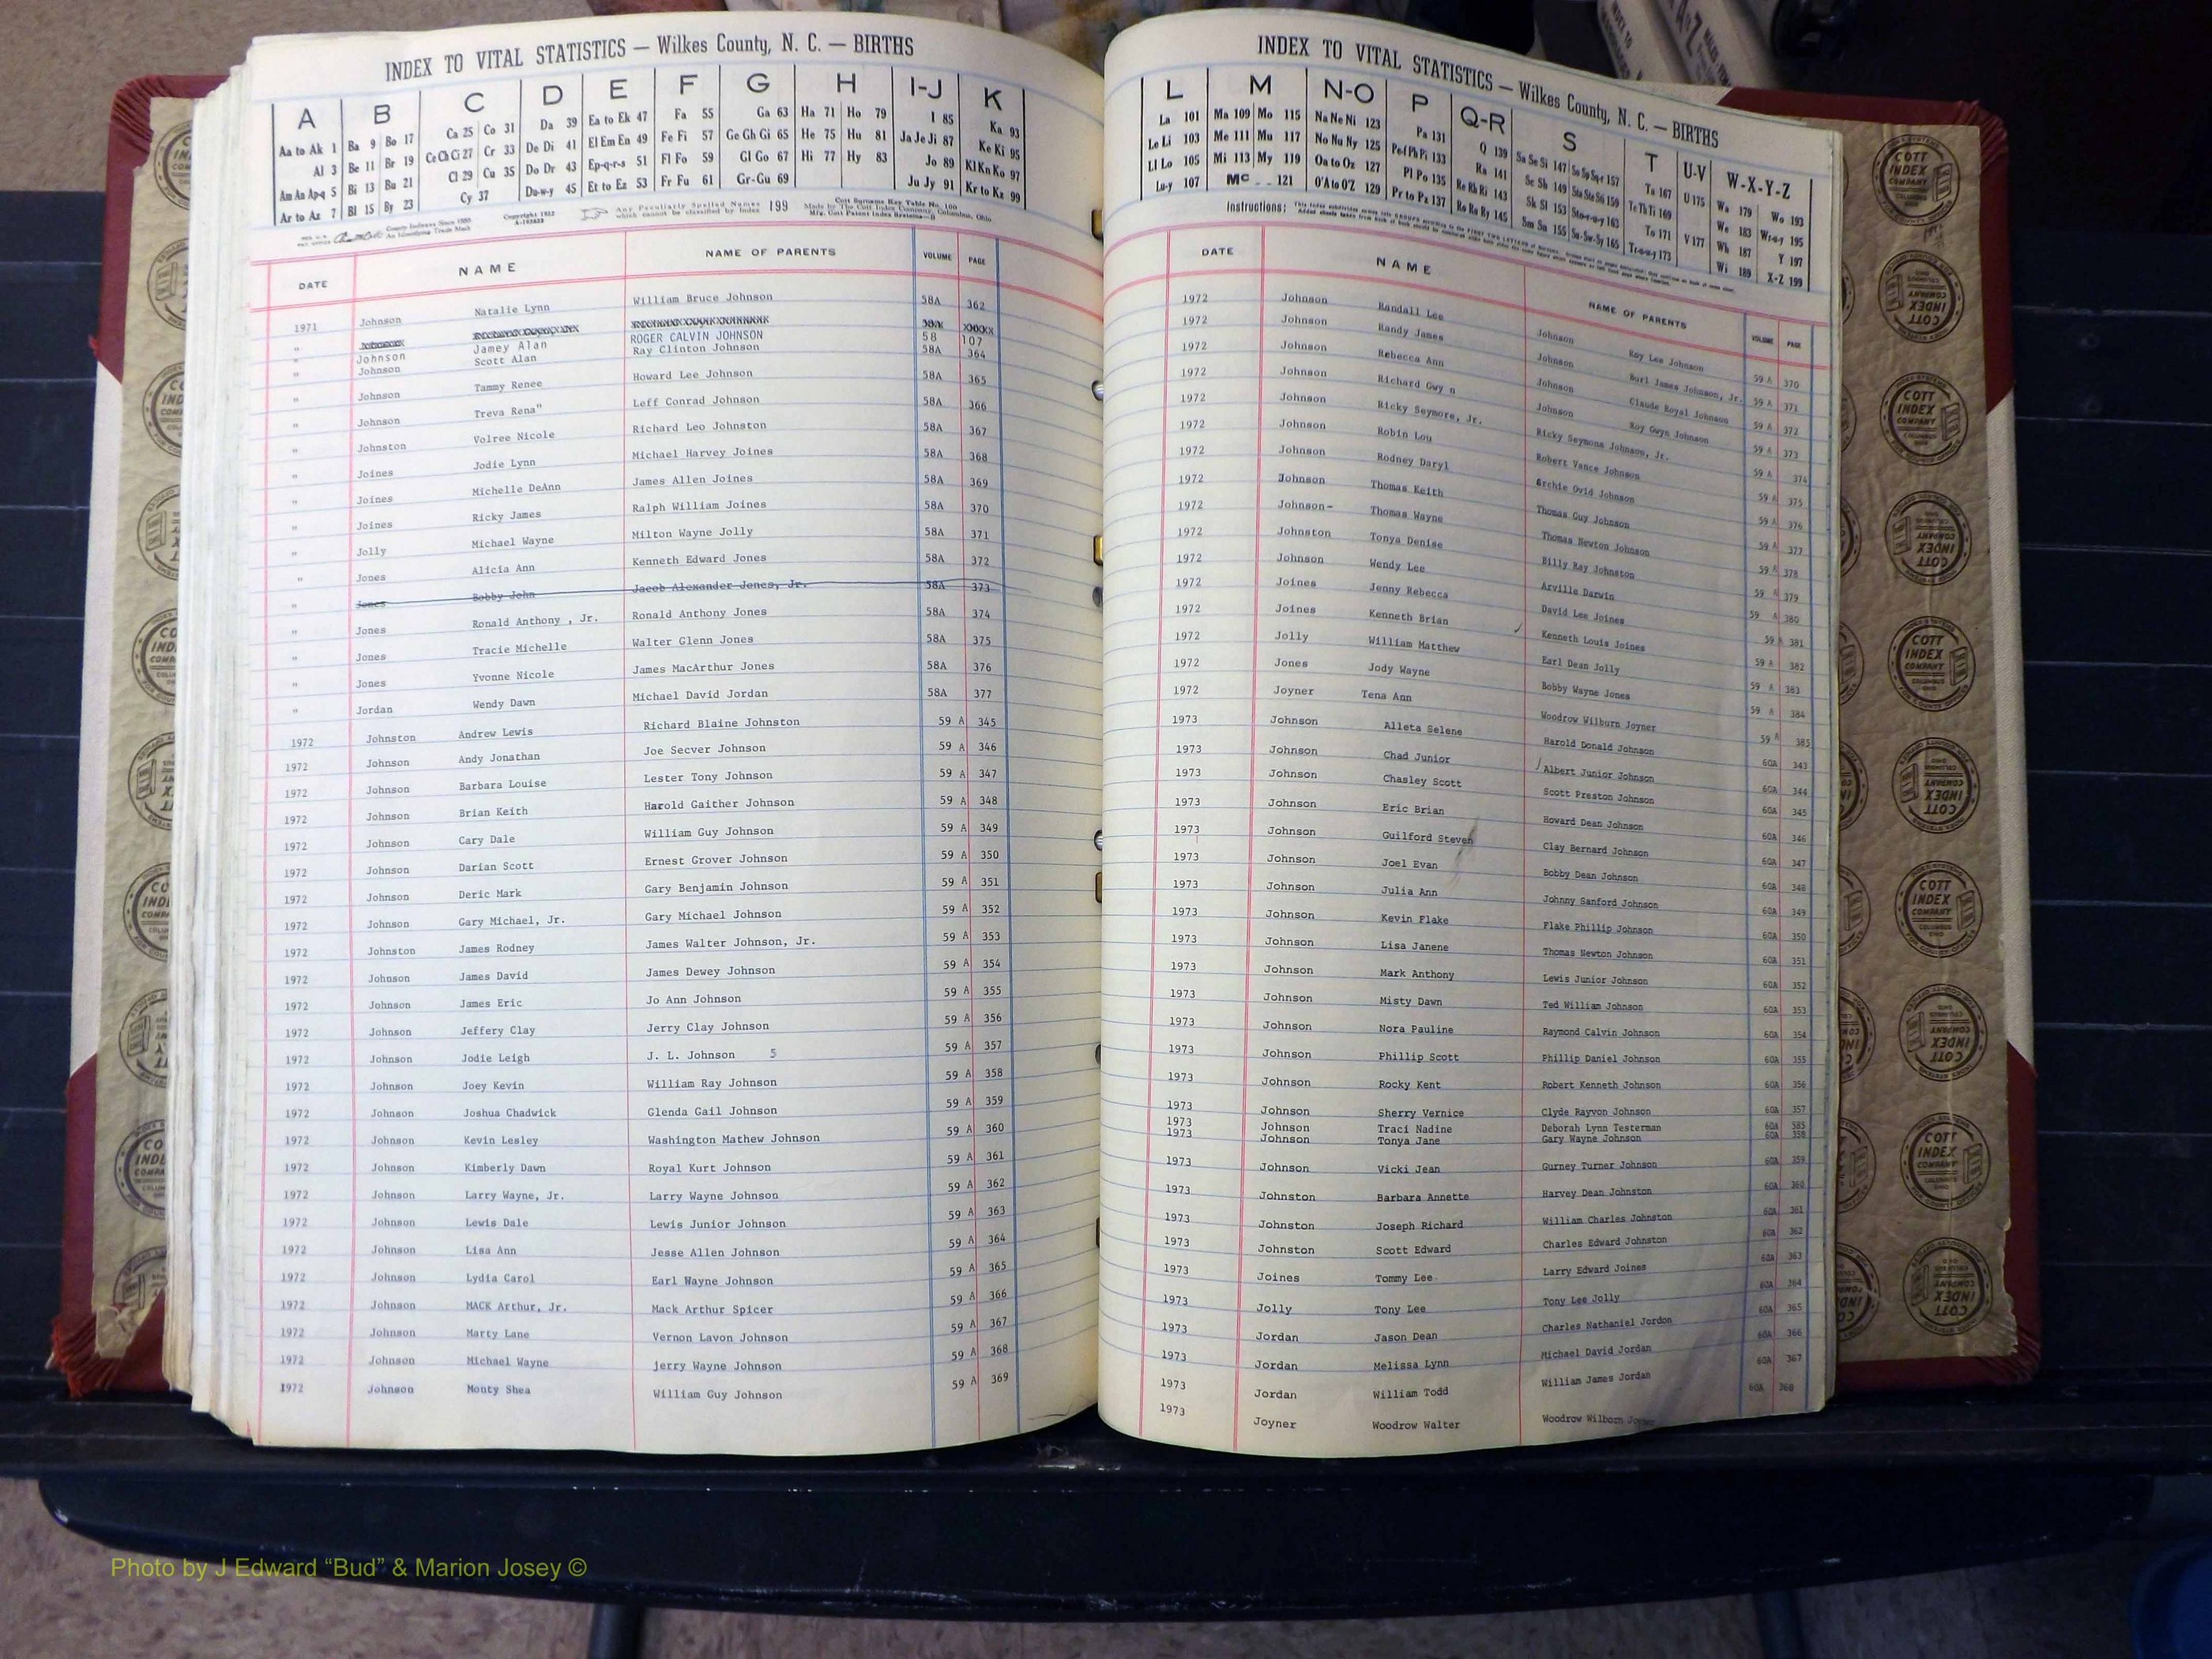 INDEX TO VITAL STATISTICS — Wilkes County, N. C. — BIRTHS
A B C D E F G H I-J K
Aa to Ak 1 Ba 9 Bo 17 Ca 25 Co 31 Da 39 Ea to Ek 47 Fa 55 Ga 63 Ha 71 Ho 79 I 85 Ka 93
Al 3 Be 11 Br 19 Ce Ch Ci 27 Cr 33 De Di 41 El Em En 49 Fe Fi 57 Ge Gh Gi 65 He 75 Hu 81 Ja Je Ji 87 Ke Ki 95
Am An Ap-q 5 Bi 13 Bu 21 Cl 29 Cu 35 Do Dr 43 Ep-q-r-s 51 Fl Fo 59 Gl Go 67 Hi 77 Hy 83 Jo 89 Kl Kn Ko 97
Ar to Az 7 Bl 15 By 23 Cy 37 Du-w-y 45 Et to Ez 53 Fr Fu 61 Gr-Gu 69 Ju Jy 91 Kr to Kz 99
Any Peculiarly Spelled Names which cannot be classified by Index 199
DATE NAME NAME OF PARENTS VOLUME PAGE
1971 Johnson Natalie Lynn William Bruce Johnson 58A 362
" Johnson Jamey Alan ROGER CALVIN JOHNSON 58 107
" Johnson Scott Alan Ray Clinton Johnson 58A 364
" Johnson Tammy Renee Howard Lee Johnson 58A 365
" Johnson Treva Rena" Leff Conrad Johnson 58A 366
" Johnston Volree Nicole Richard Leo Johnston 58A 367
" Joines Jodie Lynn Michael Harvey Joines 58A 368
" Joines Michelle DeAnn James Allen Joines 58A 369
" Joines Ricky James Ralph William Joines 58A 370
" Jolly Michael Wayne Milton Wayne Jolly 58A 371
" Jones Alicia Ann Kenneth Edward Jones 58A 372
" Jones Bobby John Jacob Alexander Jones, Jr. 58A 373
" Jones Ronald Anthony , Jr. Ronald Anthony Jones 58A 374
" Jones Tracie Michelle Walter Glenn Jones 58A 375
" Jones Yvonne Nicole James MacArthur Jones 58A 376
" Jordan Wendy Dawn Michael David Jordan 58A 377
1972 Johnston Andrew Lewis Richard Blaine Johnston 59 A 345
1972 Johnson Andy Jonathan Joe Secver Johnson 59 A 346
1972 Johnson Barbara Louise Lester Tony Johnson 59 A 347
1972 Johnson Brian Keith Harold Gaither Johnson 59 A 348
1972 Johnson Cary Dale William Guy Johnson 59 A 349
1972 Johnson Darian Scott Ernest Grover Johnson 59 A 350
1972 Johnson Deric Mark Gary Benjamin Johnson 59 A 351
1972 Johnson Gary Michael, Jr. Gary Michael Johnson 59 A 352
1972 Johnston James Rodney James Walter Johnson, Jr. 59 A 353
1972 Johnson James David James Dewey Johnson 59 A 354
1972 Johnson James Eric Jo Ann Johnson 59 A 355
1972 Johnson Jeffery Clay Jerry Clay Johnson 59 A 356
1972 Johnson Jodie Leigh J. L. Johnson 5 59 A 357
1972 Johnson Joey Kevin William Ray Johnson 59 A 358
1972 Johnson Joshua Chadwick Glenda Gail Johnson 59 A 359
1972 Johnson Kevin Lesley Washington Mathew Johnson 59 A 360
1972 Johnson Kimberly Dawn Royal Kurt Johnson 59 A 361
1972 Johnson Larry Wayne, Jr. Larry Wayne Johnson 59 A 362
1972 Johnson Lewis Dale Lewis Junior Johnson 59 A 363
1972 Johnson Lisa Ann Jesse Allen Johnson 59 A 364
1972 Johnson Lydia Carol Earl Wayne Johnson 59 A 365
1972 Johnson MACK Arthur, Jr. Mack Arthur Spicer 59 A 366
1972 Johnson Marty Lane Vernon Lavon Johnson 59 A 367
1972 Johnson Michael Wayne jerry Wayne Johnson 59 A 368
1972 Johnson Monty Shea William Guy Johnson 59 A 369
INDEX TO VITAL STATISTICS — Wilkes County, N. C. — BIRTHS
L M N-O P Q-R S T U-V W-X-Y-Z
La 101 Ma 109 Mo 115 Na Ne Ni 123 Pa 131 Q 139 Sa Se Si 147 So Sp Sq-r 157 Ta 167 U 175 Wa 179 Wo 193
Le Li 103 Me 111 Mu 117 No Nu Ny 125 Pe-f Ph Pi 133 Ra 141 Sc Sh 149 Sta Ste Sti 159 Te Th Ti 169 We 183 Wr-u-y 195
Ll Lo 105 Mi 113 My 119 Oa to Oz 127 Pl Po 135 Re Rh Ri 143 Sk Sl 153 Sto-r-u-y 163 To 171 V 177 Wh 187 Y 197
Lu-y 107 Mc 121 O'A to O'Z 129 Pr to Pz 137 Ro Ru Ry 145 Sm Sn 155 Su-Sw-Sy 165 Tr-u-w-y 173 Wi 189 X-Z 199
Instructions:
DATE NAME NAME OF PARENTS VOLUME PAGE
1972 Johnson Randall Lee Johnson Roy Lee Johnson 59 A 370
1972 Johnson Randy James Johnson Burl James Johnson, Jr. 59 A 371
1972 Johnson Rebecca Ann Johnson Claude Royal Johnson 59 A 372
1972 Johnson Richard Gwy n Johnson Roy Gwyn Johnson 59 A 373
1972 Johnson Ricky Seymore, Jr. Ricky Seymons Johnson, Jr. 59 A 374
1972 Johnson Robin Lou Robert Vance Johnson 59 A 375
1972 Johnson Rodney Daryl Archie Ovid Johnson 59 A 376
1972 Johnson Thomas Keith Thomas Guy Johnson 59 A 377
1972 Johnson- Thomas Wayne Thomas Newton Johnson 59 A 378
1972 Johnston Tonya Denise Billy Ray Johnston 59 A 379
1972 Johnson Wendy Lee Arville Darwin 59 A 380
1972 Joines Jenny Rebecca David Lee Joines 59 A 381
1972 Joines Kenneth Brian Kenneth Louis Joines 59 A 382
1972 Jolly William Matthew Earl Dean Jolly 59 A 383
1972 Jones Jody Wayne Bobby Wayne Jones 59 A 384
1972 Joyner Tena Ann Woodrow Wilburn Joyner 59 A 385
1973 Johnson Alleta Selene Harold Donald Johnson 60A 343
1973 Johnson Chad Junior Albert Junior Johnson 60A 344
1973 Johnson Chasley Scott Scott Preston Johnson 60A 345
1973 Johnson Eric Brian Howard Dean Johnson 60A 346
1973 Johnson Guilford Steven Clay Bernard Johnson 60A 347
1973 Johnson Joel Evan Bobby Dean Johnson 60A 348
1973 Johnson Julia Ann Johnny Sanford Johnson 60A 349
1973 Johnson Kevin Flake Flake Phillip Johnson 60A 350
1973 Johnson Lisa Janene Thomas Newton Johnson 60A 351
1973 Johnson Mark Anthony Lewis Junior Johnson 60A 352
1973 Johnson Misty Dawn Ted William Johnson 60A 353
1973 Johnson Nora Pauline Raymond Calvin Johnson 60A 354
1973 Johnson Phillip Scott Phillip Daniel Johnson 60A 355
1973 Johnson Rocky Kent Robert Kenneth Johnson 60A 356
1973 Johnson Sherry Vernice Clyde Rayvon Johnson 60A 357
1973 Johnson Traci Nadine Deborah Lynn Testerman 60A 585
1973 Johnson Tonya Jane Gary Wayne Johnson 60A 358
1973 Johnson Vicki Jean Gurney Turner Johnson 60A 359
1973 Johnston Barbara Annette Harvey Dean Johnston 60A 360
1973 Johnston Joseph Richard William Charles Johnston 60A 361
1973 Johnston Scott Edward Charles Edward Johnston 60A 362
1973 Joines Tommy Lee Larry Edward Joines 60A 363
1973 Jolly Tony Lee Tony Lee Jolly 60A 364
1973 Jordan Jason Dean Charles Nathaniel Jordon 60A 365
1973 Jordan Melissa Lynn Michael David Jordan 60A 366
1973 Jordan William Todd William James Jordan 60A 367
1973 Joyner Woodrow Walter Woodrow Wilborn Joyner 60A 368
Photo by J Edward “Bud” & Marion Josey ©